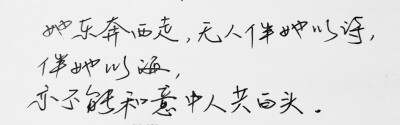 她东奔西走，无人伴她以诗，
伴她以海，
亦不能和意中人共白头．